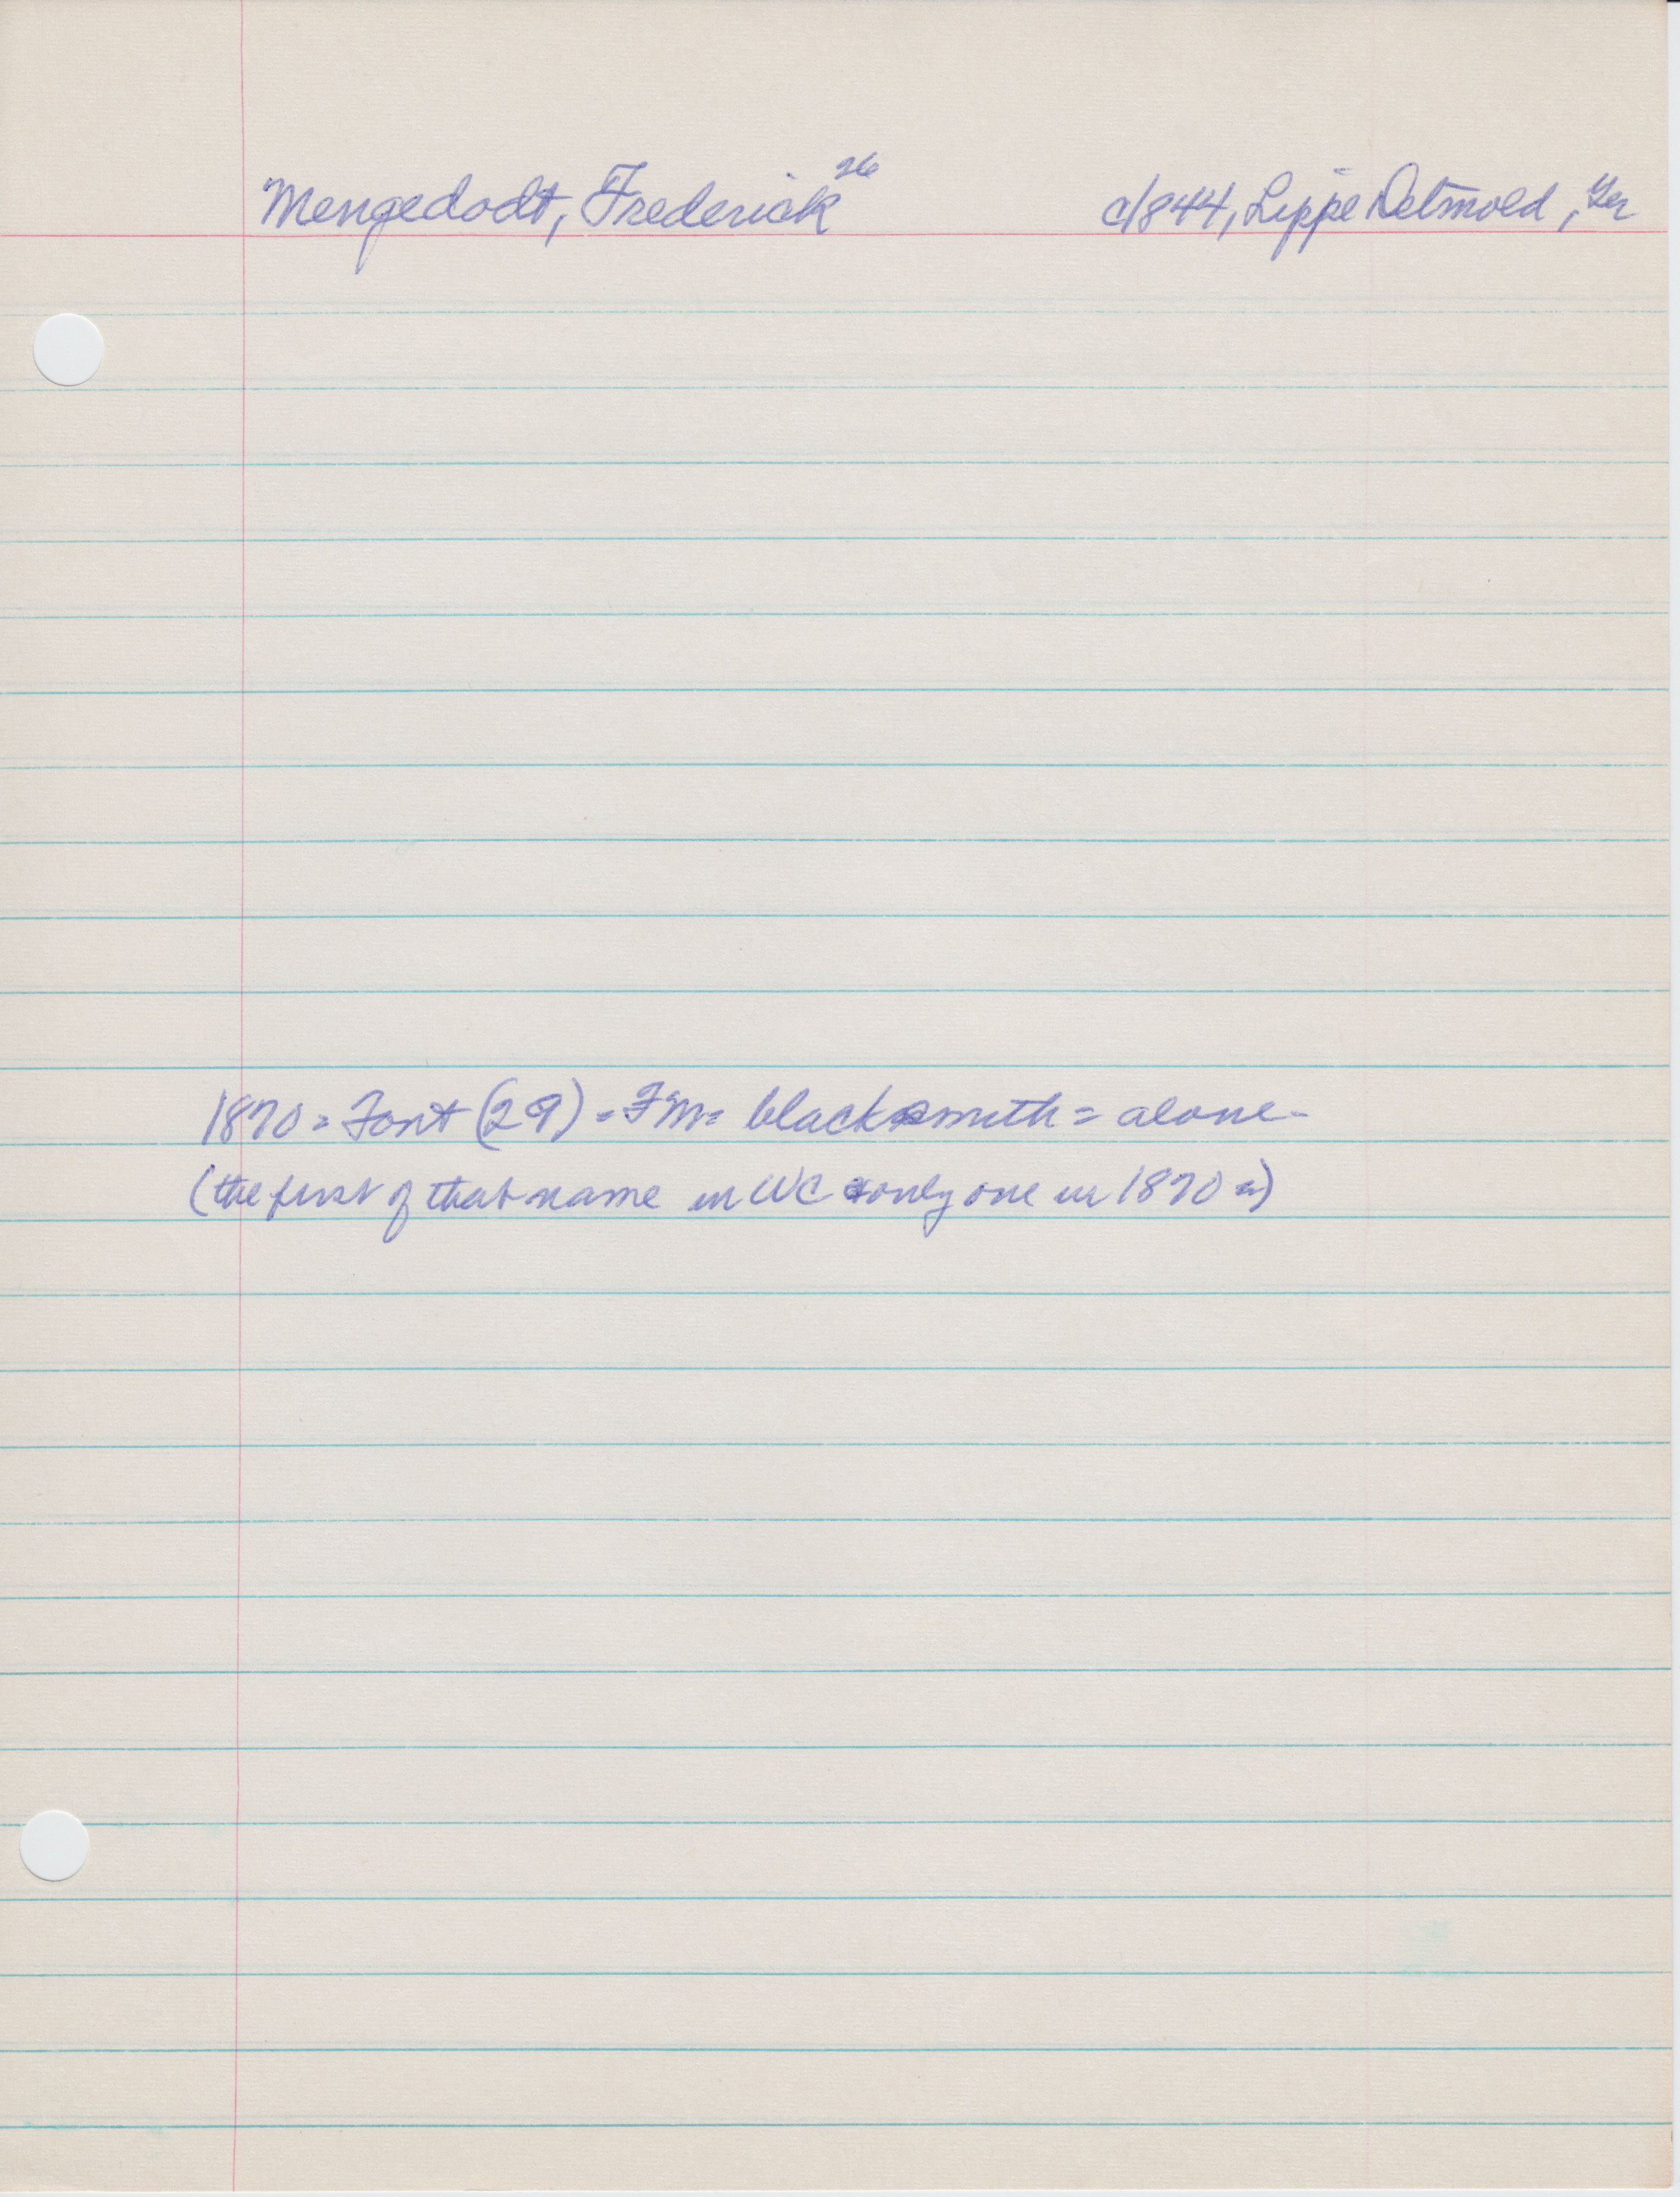 Mengedodt, Frederick 26 c/844, Lippe Detmold, Ger
1870 = Font (29) = FM = blacksmith = alone -
(the first of that name in WC & only one in 1870 =)